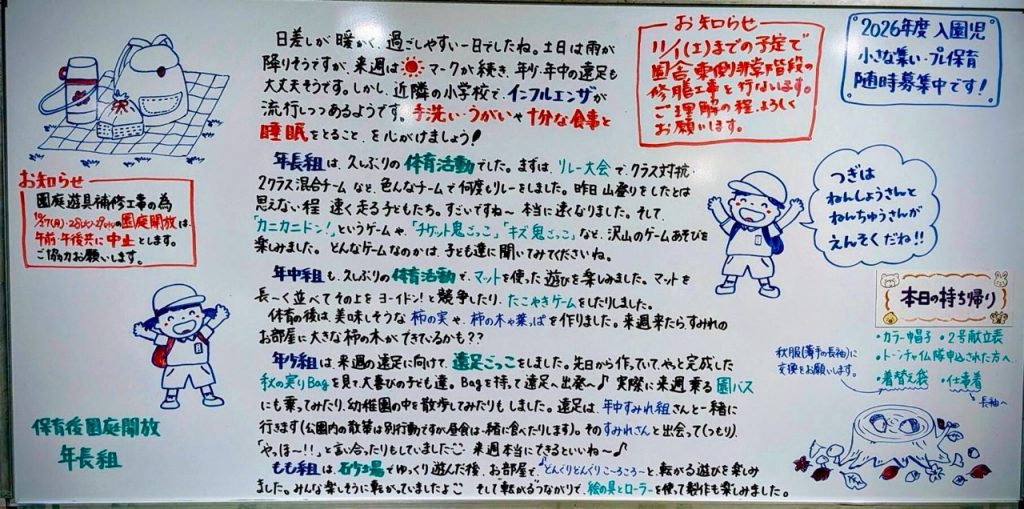 日差しが暖かく、過ごしやすい一日でしたね。土日は雨が
降りそうですが、来週は マークが続き、年少・年中の遠足も
大丈夫そうです。しかし、近隣の小学校で、インフルエンザが
流行しつつあるようです。手洗い・うがいや十分な食事と
睡眠をとること、を心がけましょう!
年長組は、久しぶりの体育活動でした。まずは、リレー大会で、クラス対抗・
2クラス混合チームなど、色んなチームで何度もリレーをしました。昨日山登りをしたとは
思えない程、速く走る子どもたち。すごいですね〜 本当に速くなりました。そして、
「カニカニドン!」というゲームや、「チケット鬼ごっこ」「キズ鬼ごっこ」など、沢山のゲームあそびを
楽しみました。どんなゲームなのかは、子ども達に聞いてみてくださいね。
年中組も、久しぶりの体育活動で、マットを使った遊びを楽しみました。マットを
長〜く並べてその上をヨーイドン!と競争したり、たこやきゲームをしたりしました。
体育の後は、美味しそうな柿の実や、柿の木や葉っぱを作りました。来週来たらすみれの
お部屋に大きな柿の木ができているかも??
年少組は、来週の遠足に向けて、遠足ごっこをしました。先日から作っていて、やっと完成した
秋の実りBagを見て、大喜びの子ども達。Bagを持って遠足へ出発〜♪ 実際に来週乗る園バス
にも乗ってみたり、幼稚園の中を散歩してみたりもしました。遠足は、年中すみれ組さんと一緒に
行きます(公園内の散策は別行動ですが、昼食は一緒に食べたりします)。そのすみれさんと出会って(つもり)、
「やっほ〜!!」と言い合ったりもしていました 来週本当にできるといいね〜♪
もも組は、砂場でゆっくり遊んだ後、お部屋で、♪どんぐりどんぐりころころ〜と、転がる遊びを楽しみ
ました。みんな楽しそうに転がっていましたよ そして転がるつながりで、絵の具とローラーを使って製作も楽しみました。
お知らせ
園庭遊具補修工事の為
10/27(月)・28(火)・29(水)の園庭開放は、
午前・午後共に中止とします。
ご協力お願いします。
保育後園庭開放
年長組
お知らせ
11/1(土)までの予定で
園舎東側非常階段の
修膳工事を行ないます。
ご理解の程、よろしく
お願いします。
2026年度入園児
小さな集い・プレ保育
随時募集中です!
つぎは
ねんしょうさんと
ねんちゅうさんが
えんそくだね!!
本日の持ち帰り
・カラー帽子 ・2号献立表
・トーンチャイム隊申込された方へ
・着替え袋 ・仕事着
秋服(薄手の長袖)に
交換をお願いします。
長袖へ